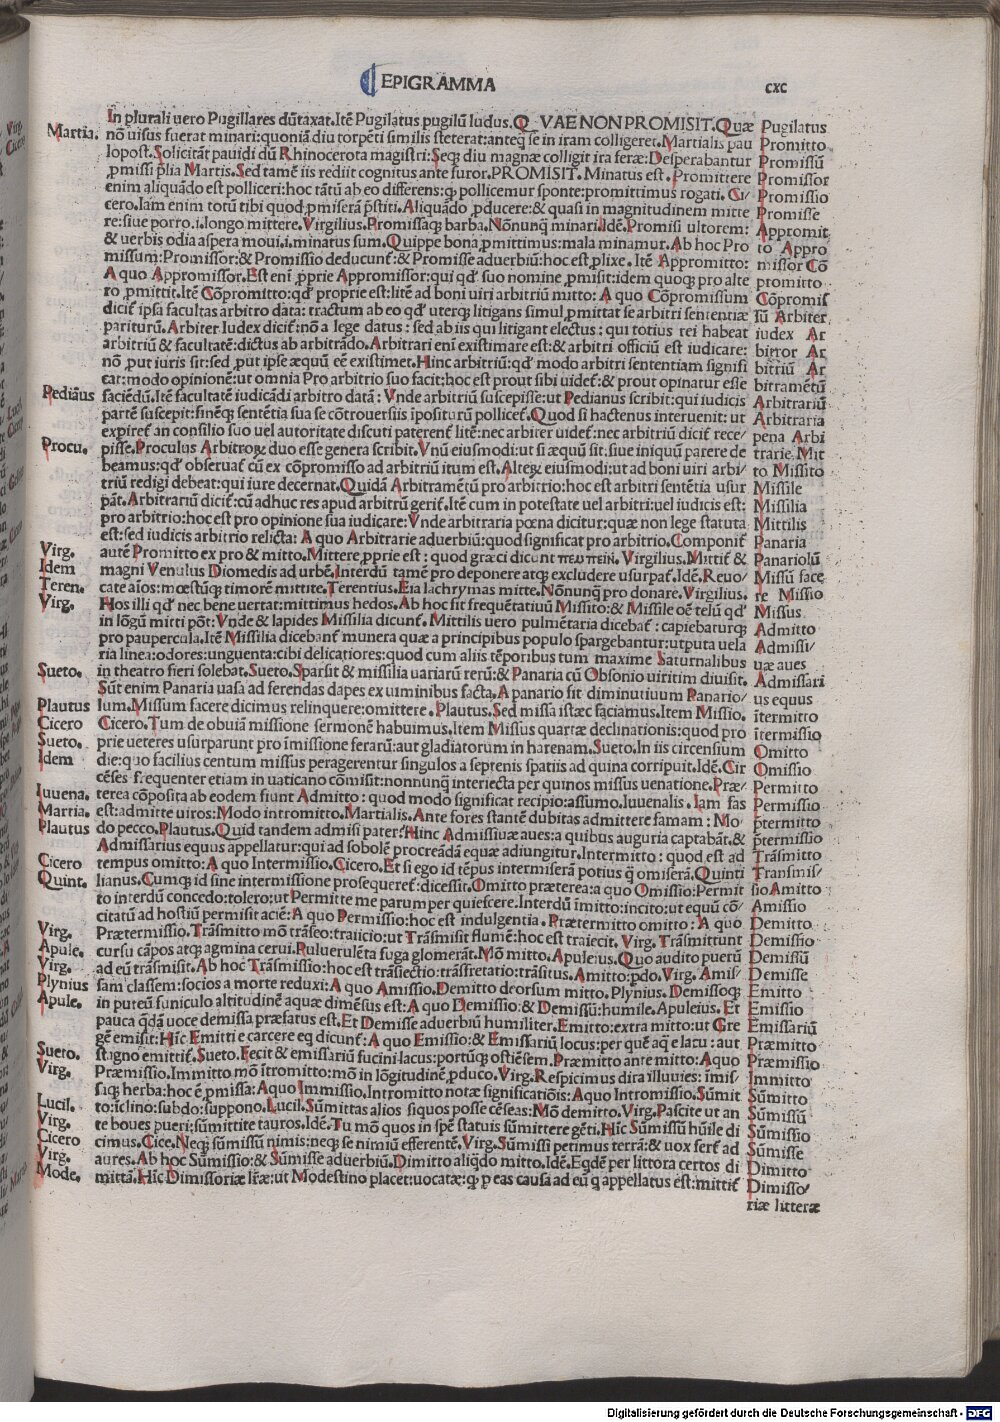 EPIGRAMMA
cxc
In plurali uero Pugillares dūtaxat. Itē Pugilatus pugilū ludus. Q VAE NON PROMISIT. Quæ
nō uisus fuerat minari: quoniā diu torpēti similis steterat: anteq̄ se in iram colligeret. Martialis pau
lopost. Solicitāt pauidi dū Rhinocerota magistri: Seq; diu magnæ colligit ira feræ: Desperabantur
p̄missi p̄lia Martis. Sed tamē iis rediit cognitus ante furor. PROMISIT. Minatus est. Promittere
enim aliquādo est polliceri: hoc tātū ab eo differens: q; pollicemur sponte: promittimus rogati. Ci/
cero. Iam enim totū tibi quod p̄miserā p̄stiti. Aliquādo p̄ducere: & quasi in magnitudinem mitte
re: siue porro .i. longo mittere. Virgilius. Promissaq; barba. Nōnunq̄ minari. Idē. Promisi ultorem:
& uerbis odia aspera moui .i. minatus sum. Quippe bona p̄mittimus: mala minamur. Ab hoc Pro
missum: Promissor: & Promissio deducunt̄: & Promisse aduerbiū: hoc est p̄lixe. Itē Appromitto:
A quo Appromissor. Est enī p̄prie Appromissor: qui qd' suo nomine p̄misit: idem quoq; pro alte
ro p̄mittit. Itē Cōpromitto: qd' proprie est: litē ad boni uiri arbitriū mitto: A quo Cōpromissum
dicit̄ ipsa facultas arbitro data: tractum ab eo qd' uterq; litigans simul p̄mittat se arbitri sententiæ
pariturū. Arbiter Iudex dicit̄: nō a lege datus: sed ab iis qui litigant electus: qui totius rei habeat
arbitriū & facultatē: dictus ab arbitrādo. Arbitrari enī existimare est: & arbitri officiū est iudicare:
nō put iuris sit: sed put ipse æquū eē existimet. Hinc arbitriū: qd' modo arbitri sententiam signifi
cat: modo opinionē: ut omnia Pro arbitrio suo facit: hoc est prout sibi uidet̄: & prout opinatur esse
faciēdū. Itē facultatē iudicādi arbitro datā: Vnde arbitriū suscepisse: ut Pedianus scribit: qui iudicis
partē suscepit: finēq; sentētia sua se cōtrouersiis īpositurū pollicet̄. Quod si hactenus interuenit: ut
expiret̄ an consilio suo uel autoritate discuti paterent̄ litē: nec arbiter uidet̄: nec arbitriū dicit̄ rece/
pisse. Proculus Arbitroꝝ duo esse genera scribit. Vnū eiusmodi: ut si æquū sit: siue iniquū parere de
beamus: qd' obseruat̄ cū ex cōpromisso ad arbitriū itum est. Alteꝝ eiusmodi: ut ad boni uiri arbi/
triū redigi debeat: qui iure decernat. Quidā Arbitramētū pro arbitrio: hoc est arbitri sentētia usur
pāt. Arbitrariū dicit̄: cū adhuc res apud arbitrū gerit̄. Itē cum in potestate uel arbitri: uel iudicis est:
pro arbitrio: hoc est pro opinione sua iudicare: Vnde arbitraria pœna dicitur: quæ non lege statuta
est: sed iudicis arbitrio relicta: A quo Arbitrarie aduerbiū: quod significat pro arbitrio. Componit̄
autē Promitto ex pro & mitto. Mittere p̄prie est: quod græci dicunt πευπειν. Virgilius. Mittit̄ &
magni Venulus Diomedis ad urbē. Interdū tamē pro deponere atq; excludere usurpat̄. Idē. Reuo/
cate aīos: mœstūq; timorē mittite. Terentius. Eia lachrymas mitte. Nōnunq̄ pro donare. Virgilius.
Hos illi qd' nec bene uertat: mittimus hedos. Ab hoc fit frequētatiuū Missito: & Missile oē telū qd'
in lōgū mitti pōt: Vnde & lapides Missilia dicunt̄. Mittilis uero pulmētaria dicebat̄: capiebaturq;
pro paupercula. Itē Missilia dicebant̄ munera quæ a principibus populo spargebantur: utputa uela
ria linea: odores: unguenta: cibi delicatiores: quod cum aliis tēporibus tum maxime Saturnalibus
in theatro fieri solebat. Sueto. Sparsit & missilia uariarū rerū: & Panaria cū Obsonio uiritim diuisit.
Sūt enim Panaria uasa ad ferendas dapes ex uiminibus facta. A panario fit diminutiuum Panario/
lum. Missum facere dicimus relinquere: omittere. Plautus. Sed missa istæc faciamus. Item Missio.
Cicero. Tum de obuiā missione sermonē habuimus. Item Missus quartæ declinationis: quod pro
prie ueteres usurparunt pro īmissione ferarū: aut gladiatorum in harenam. Sueto. In iis circensium
die: quo facilius centum missus peragerentur singulos a septenis spatiis ad quina corripuit. Idē. Cir
cēses frequenter etiam in uaticano cōmisit: nonnunq̄ interiecta per quinos missus uenatione. Præ/
terea cōposita ab eodem fiunt Admitto: quod modo significat recipio: assumo. Iuuenalis. Iam fas
est: admitte uiros: Modo intromitto. Martialis. Ante fores stantē dubitas admittere famam: Mo
do pecco. Plautus. Quid tandem admisi pater? Hinc Admissiuæ aues: a quibus auguria captabāt̄. &
Admissarius equus appellatur: qui ad sobolē procreādā equæ adiungitur. Intermitto: quod est ad
tempus omitto: A quo Intermissio. Cicero. Et si ego id tēpus intermiserā potius q̄ omiserā. Quinti
lianus. Cumq; id sine intermissione prosequeret̄: dicessit. Omitto præterea: a quo Omissio: Permit
to interdū concedo: tolero: ut Permitte me parum per quiescere. Interdū īmitto: incito: ut equū cō
citatū ad hostiū permisit aciē: A quo Permissio: hoc est indulgentia. Prætermitto omitto: A quo
Prætermissio. Trāsmitto mō trāseo: traiicio: ut Trāsmisit flumē: hoc est traiecit. Virg. Trāsmittunt
cursu cāpos atq; agmina cerui. Puluerulēta fuga glomerāt. Mō mitto. Apuleius. Quo audito puerū
ad eū trāsmisit. Ab hoc Trāsmissio: hoc est trāsiectio: trāsfretatio: trāsitus. Amitto: p̄do. Virg. Amis/
sam classem: socios a morte reduxi: A quo Amissio. Demitto deorsum mitto. Plynius. Demissoq;
in puteū funiculo altitudinē aquæ dimēsus est: A quo Demissio: & Demissū: humile. Apuleius. Et
pauca q̄dā uoce demissa præfatus est. Et Demisse aduerbiū humiliter. Emitto: extra mitto: ut Gre
gē emisit: Hīc Emitti e carcere eq dicunt̄: A quo Emissio: & Emissariū locus: per quē aq̄ e lacu: aut
stagno emittit̄. Sueto. Fecit & emissariū fucini lacus: portūq; ostiēsem. Præmitto ante mitto: A quo
Præmissio. Immitto mō ītromitto: mō in lōgitudinē p̄duco. Virg. Respicimus dira illuuies: īmis/
saq; herba: hoc ē p̄missa: A quo Immissio. Intromitto notæ significatiōis: A quo Intromissio. Sūmit
to: īclino: subdo: suppono. Lucil. Sūmittas alios siquos posse cēseas: Mō demitto. Virg. Pascite ut an
te boues pueri: sūmittite tauros. Idē. Tu mō quos in spē statuis sūmittere gēti. Hīc Sūmissū hūile di
cimus. Cice. Neq; sūmissū nimis: neq; se nimiū efferentē. Virg. Sūmissi petimus terrā: & uox fert̄ ad
aures. Ab hoc Sūmissio: & Sūmisse aduerbiū. Dimitto aliq̄do mitto. Idē. Eq̄dē per littora certos di
mittā. Hīc Dimissoriæ lr̄æ: ut Modestino placet: uocatæ: q; p eas causa ad eū q appellatus est: mittit̄
Martia.
Pediāus
Procu.
Virg.
Idem
Teren.
Virg.
Sueto.
Plautus
Cicero
Sueto.
Idem
Iuuena.
Martia.
Plautus
Cicero
Quint.
Virg.
Apule.
Virg.
Plynius
Apule.
Sueto.
Virg.
Lucil.
Virg.
Cicero
Virg.
Mode.
Pugilatus
Promitto
Promissū
Promissor
Promissio
Promisse
Appromit
to Appro
missor Cō
promitto
Cōpromis
sū Arbiter
iudex Ar
bitror Ar
bitriū Ar
bitramētū
Arbitrariū
Arbitraria
pena Arbi
trarie. Mit
to Missito
Missile
Missilia
Mittilis
Panaria
Panariolū
Missū face
re Missio
Missus
Admitto
Admissi/
uæ aues
Admissari
us equus
ītermitto
ītermissio
Omitto
Omissio
Permitto
Permissio
p̄termitto
p̄termissio
Trāsmitto
Transmis/
sio Amitto
Amissio
Demitto
Demissio
Demissū
Demisse
Emitto
Emissio
Emissariū
Præmitto
Præmissio
Immitto
Sūmitto
Sūmissū
Sūmissio
Sūmisse
Dimitto
Dimisso/
riæ litteræ
Digitalisierung gefördert durch die Deutsche Forschungsgemeinschaft - DFG